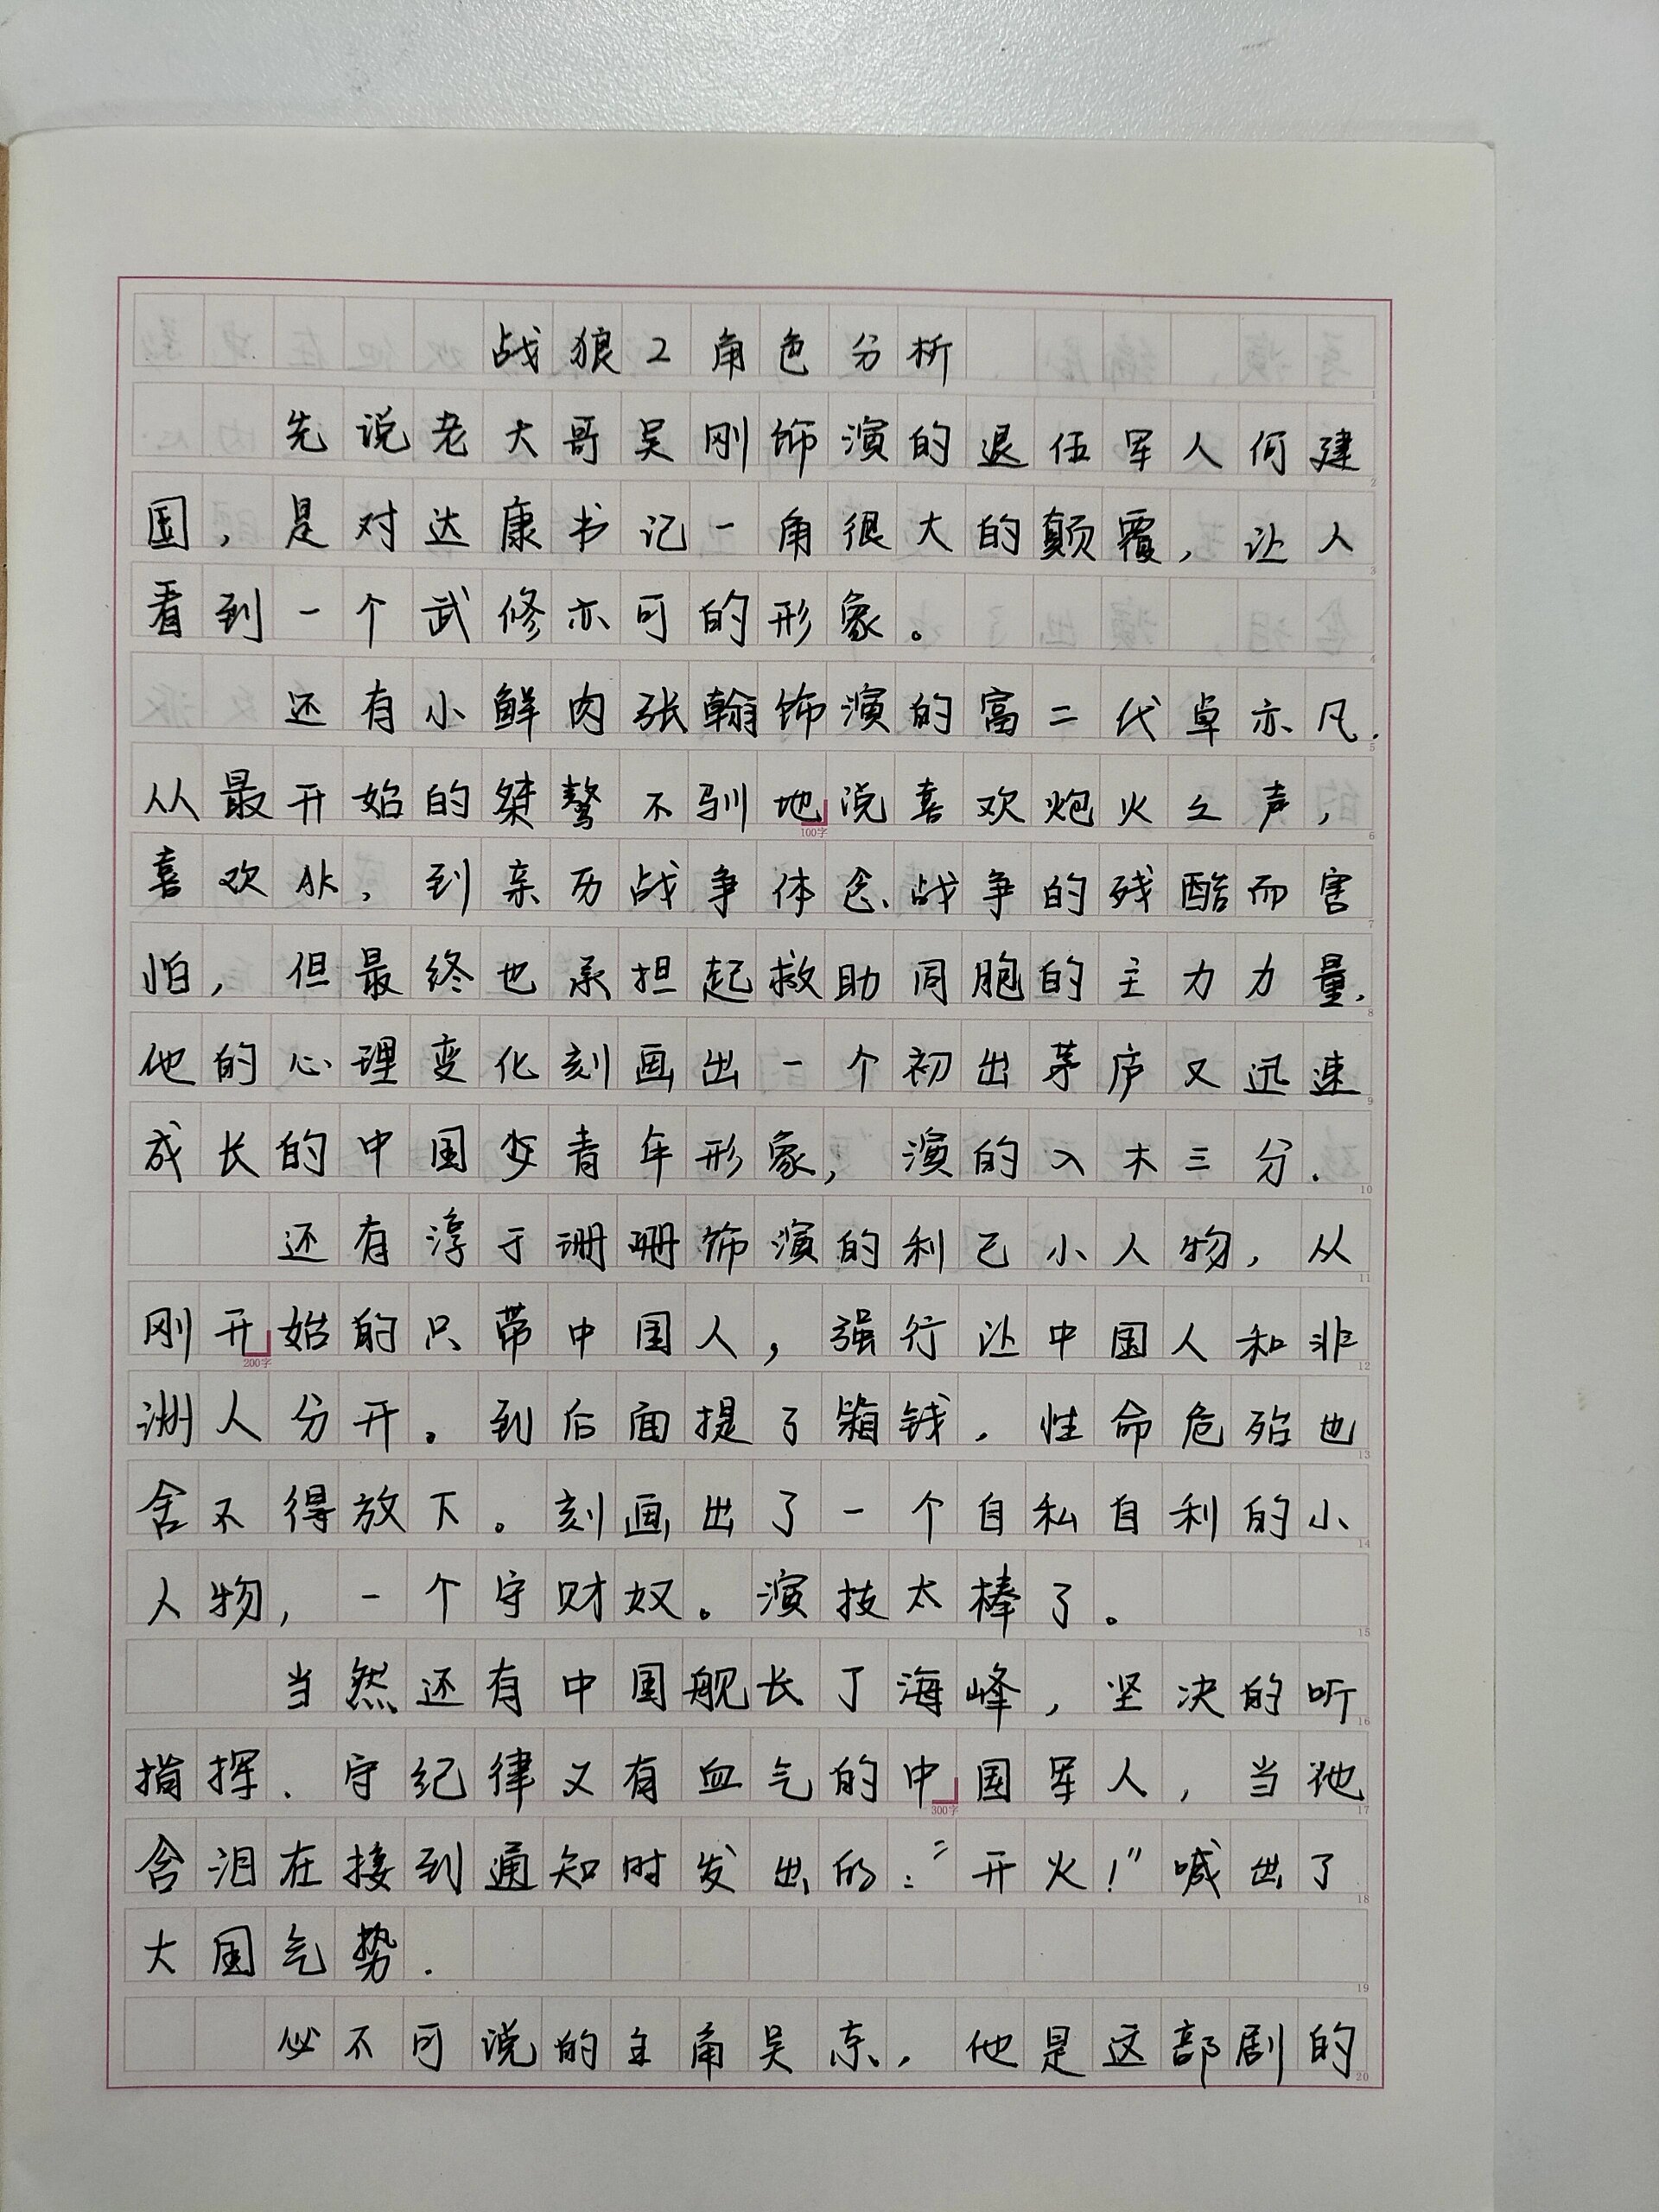 战狼2角色分析
先说老大哥吴刚饰演的退伍军人何建
国，是对达康书记一角很大的颠覆，让人
看到一个武修亦可的形象。
还有小鲜肉张翰饰演的富二代卓亦凡.
从最开始的桀骜不驯地说喜欢炮火之声，
100字
喜欢AK，到亲历战争体念战争的残酷而害
怕，但最终也承担起救助同胞的主力力量.
他的心理变化刻画出一个初出茅庐又迅速
成长的中国少青年形象，演的入木三分.
还有淳于珊珊饰演的利己小人物，从
刚开始的只带中国人，强行让中国人和非
200字
洲人分开。到后面提了箱钱，性命危殆也
舍不得放下。刻画出了一个自私自利的小
人物，一个守财奴。演技太棒了。
当然还有中国舰长丁海峰，坚决的听
指挥、守纪律又有血气的中国军人，当他
300字
含泪在接到通知时发出的：“开火！”喊出了
大国气势.
必不可说的主角吴京，他是这部剧的